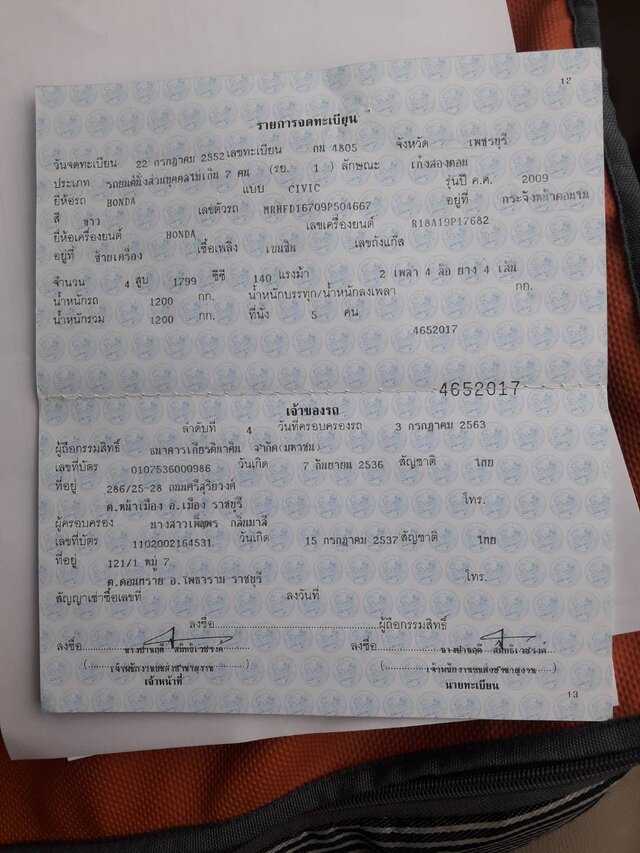 12
รายการจดทะเบียน
วันจดทะเบียน 22 กรกฎาคม 2552 เลขทะเบียน กม 4805 จังหวัด เพชรบุรี
ประเภท รถยนต์นั่งส่วนบุคคลไม่เกิน 7 คน (รย. 1 ) ลักษณะ เก๋งสองตอน
ยี่ห้อรถ HONDA แบบ CIVIC รุ่นปี ค.ศ. 2009
สี ขาว เลขตัวรถ MRHFD16709P504667 อยู่ที่
ยี่ห้อเครื่องยนต์ HONDA เลขเครื่องยนต์ R18A19P17682
อยู่ที่ ซ้ายเครื่อง เชื้อเพลิง เบนซิน เลขถังแก๊ส
จำนวน 4 สูบ 1799 ซีซี 140 แรงม้า 2 เพลา 4 ล้อ ยาง 4 เส้น
น้ำหนักรถ 1200 กก. น้ำหนักบรรทุก/น้ำหนักลงเพลา กก.
น้ำหนักรวม 1200 กก. ที่นั่ง 5 คน
4652017
4652017
เจ้าของรถ
ลำดับที่ 4 วันที่ครอบครองรถ 3 กรกฎาคม 2563
ผู้ถือกรรมสิทธิ์ ธนาคารเกียรตินาคิน จำกัด(มหาชน)
เลขที่บัตร 0107536000986 วันเกิด 7 กันยายน 2536 สัญชาติ ไทย
ที่อยู่ 286/25-28 ถนนศรีสุริยวงศ์
ต.หน้าเมือง อ.เมือง ราชบุรี โทร.
ผู้ครอบครอง นางสาวเพ็ญพร กลิ่นมาลี
เลขที่บัตร 1102002164531 วันเกิด 15 กรกฎาคม 2537 สัญชาติ ไทย
ที่อยู่ 121/1 หมู่ 7
ต.ดอนทราย อ.โพธาราม ราชบุรี โทร.
สัญญาเช่าซื้อเลขที่ ลงวันที่
ลงชื่อ ผู้ถือกรรมสิทธิ์
ลงชื่อ ลงชื่อ
(เจ้าพนักงานขนส่งชำนาญงาน) (เจ้าพนักงานขนส่งชำนาญงาน)
เจ้าหน้าที่ นายทะเบียน
13